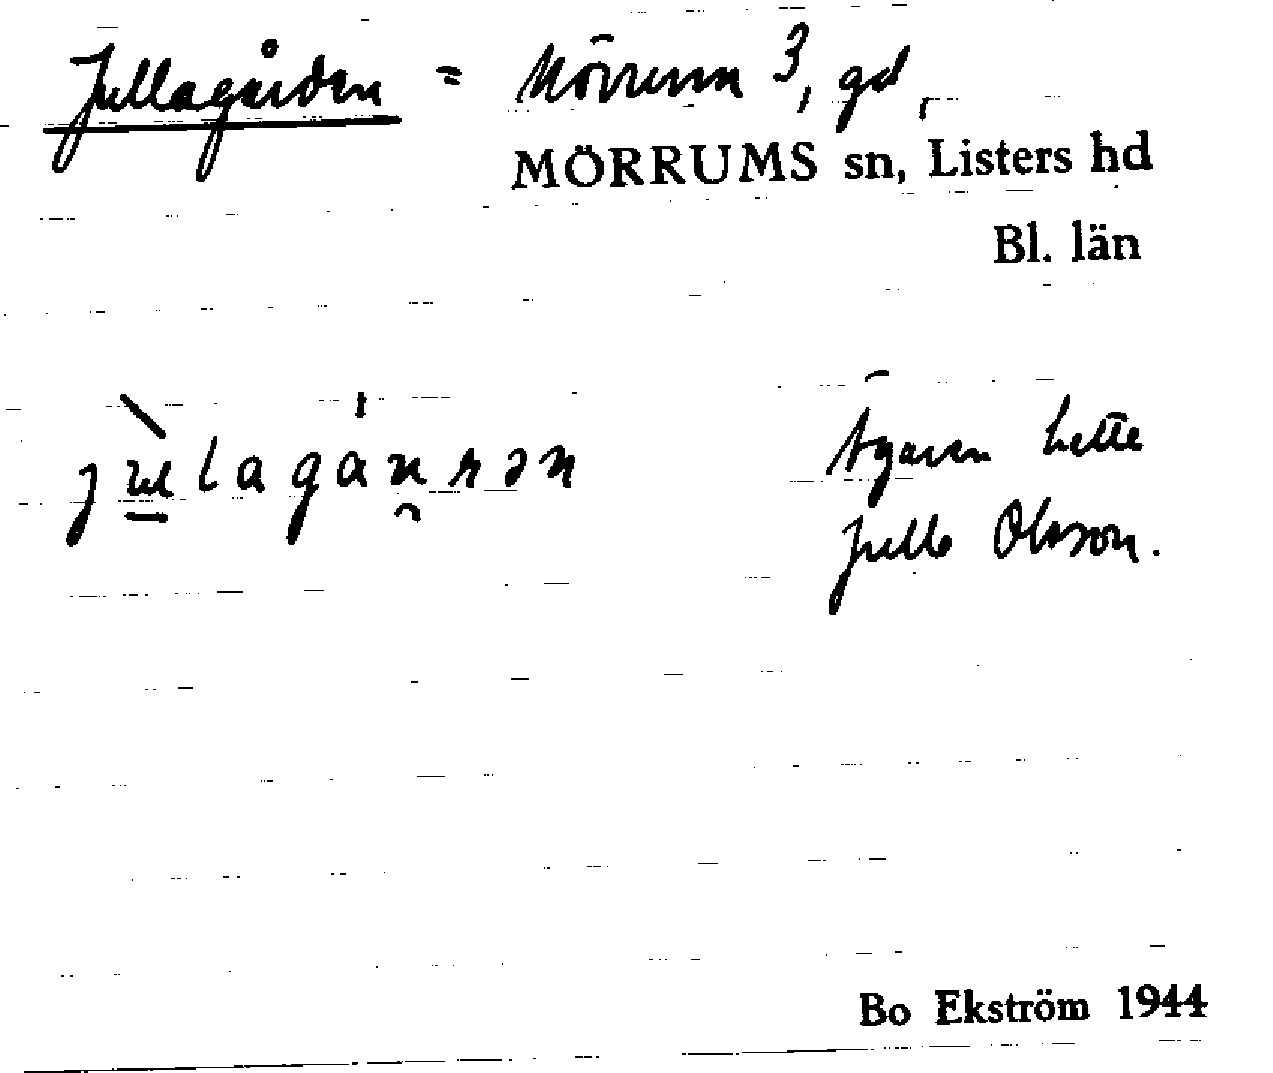 Jullagården = Mörrum 3, gd
MÖRRUMS sn, Listers hd
Bl. län
Ägaren hette
Julle Olsson.
Bo Ekström 1944